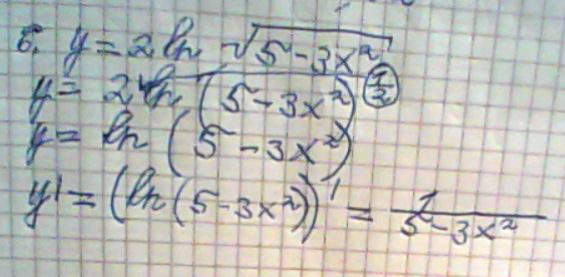 6. y = 2 ln √(5-3x²)
y = 2 ln (5-3x²)^(1/2)
y = ln (5-3x²)
y' = (ln(5-3x²))' = 1/(5-3x²)